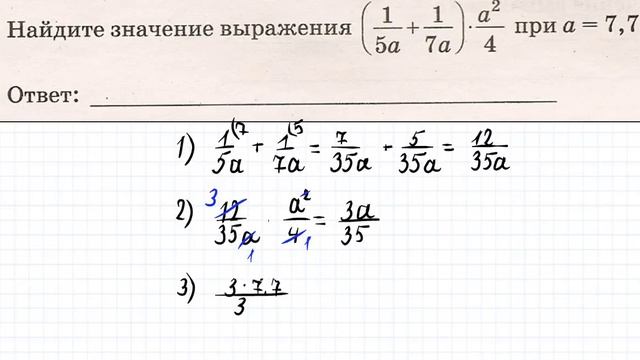 Найдите значение выражения (1/5a + 1/7a) · a²/4 при a = 7,7
Ответ:
1) 1(7/5a + 1(5/7a = 7/35a + 5/35a = 12/35a
2) 3 12/35a 1 · a²/4 1 = 3a/35
3) 3·7,7/3